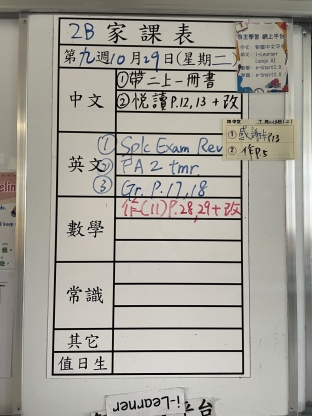 2B 家課表
第九週10月29日(星期二)
中文
①帶二上一冊書
②悅讀P.12,13 + 改
英文
① Splc Exam Rev
② FA2 tmr.
③ Gr. P.17,18
數學
作(11)P.28,29 + 改
常識
其它
值日生
自主學習 網上平台
① 感謝卡P.13
② 作P.5
i-Learner
平台